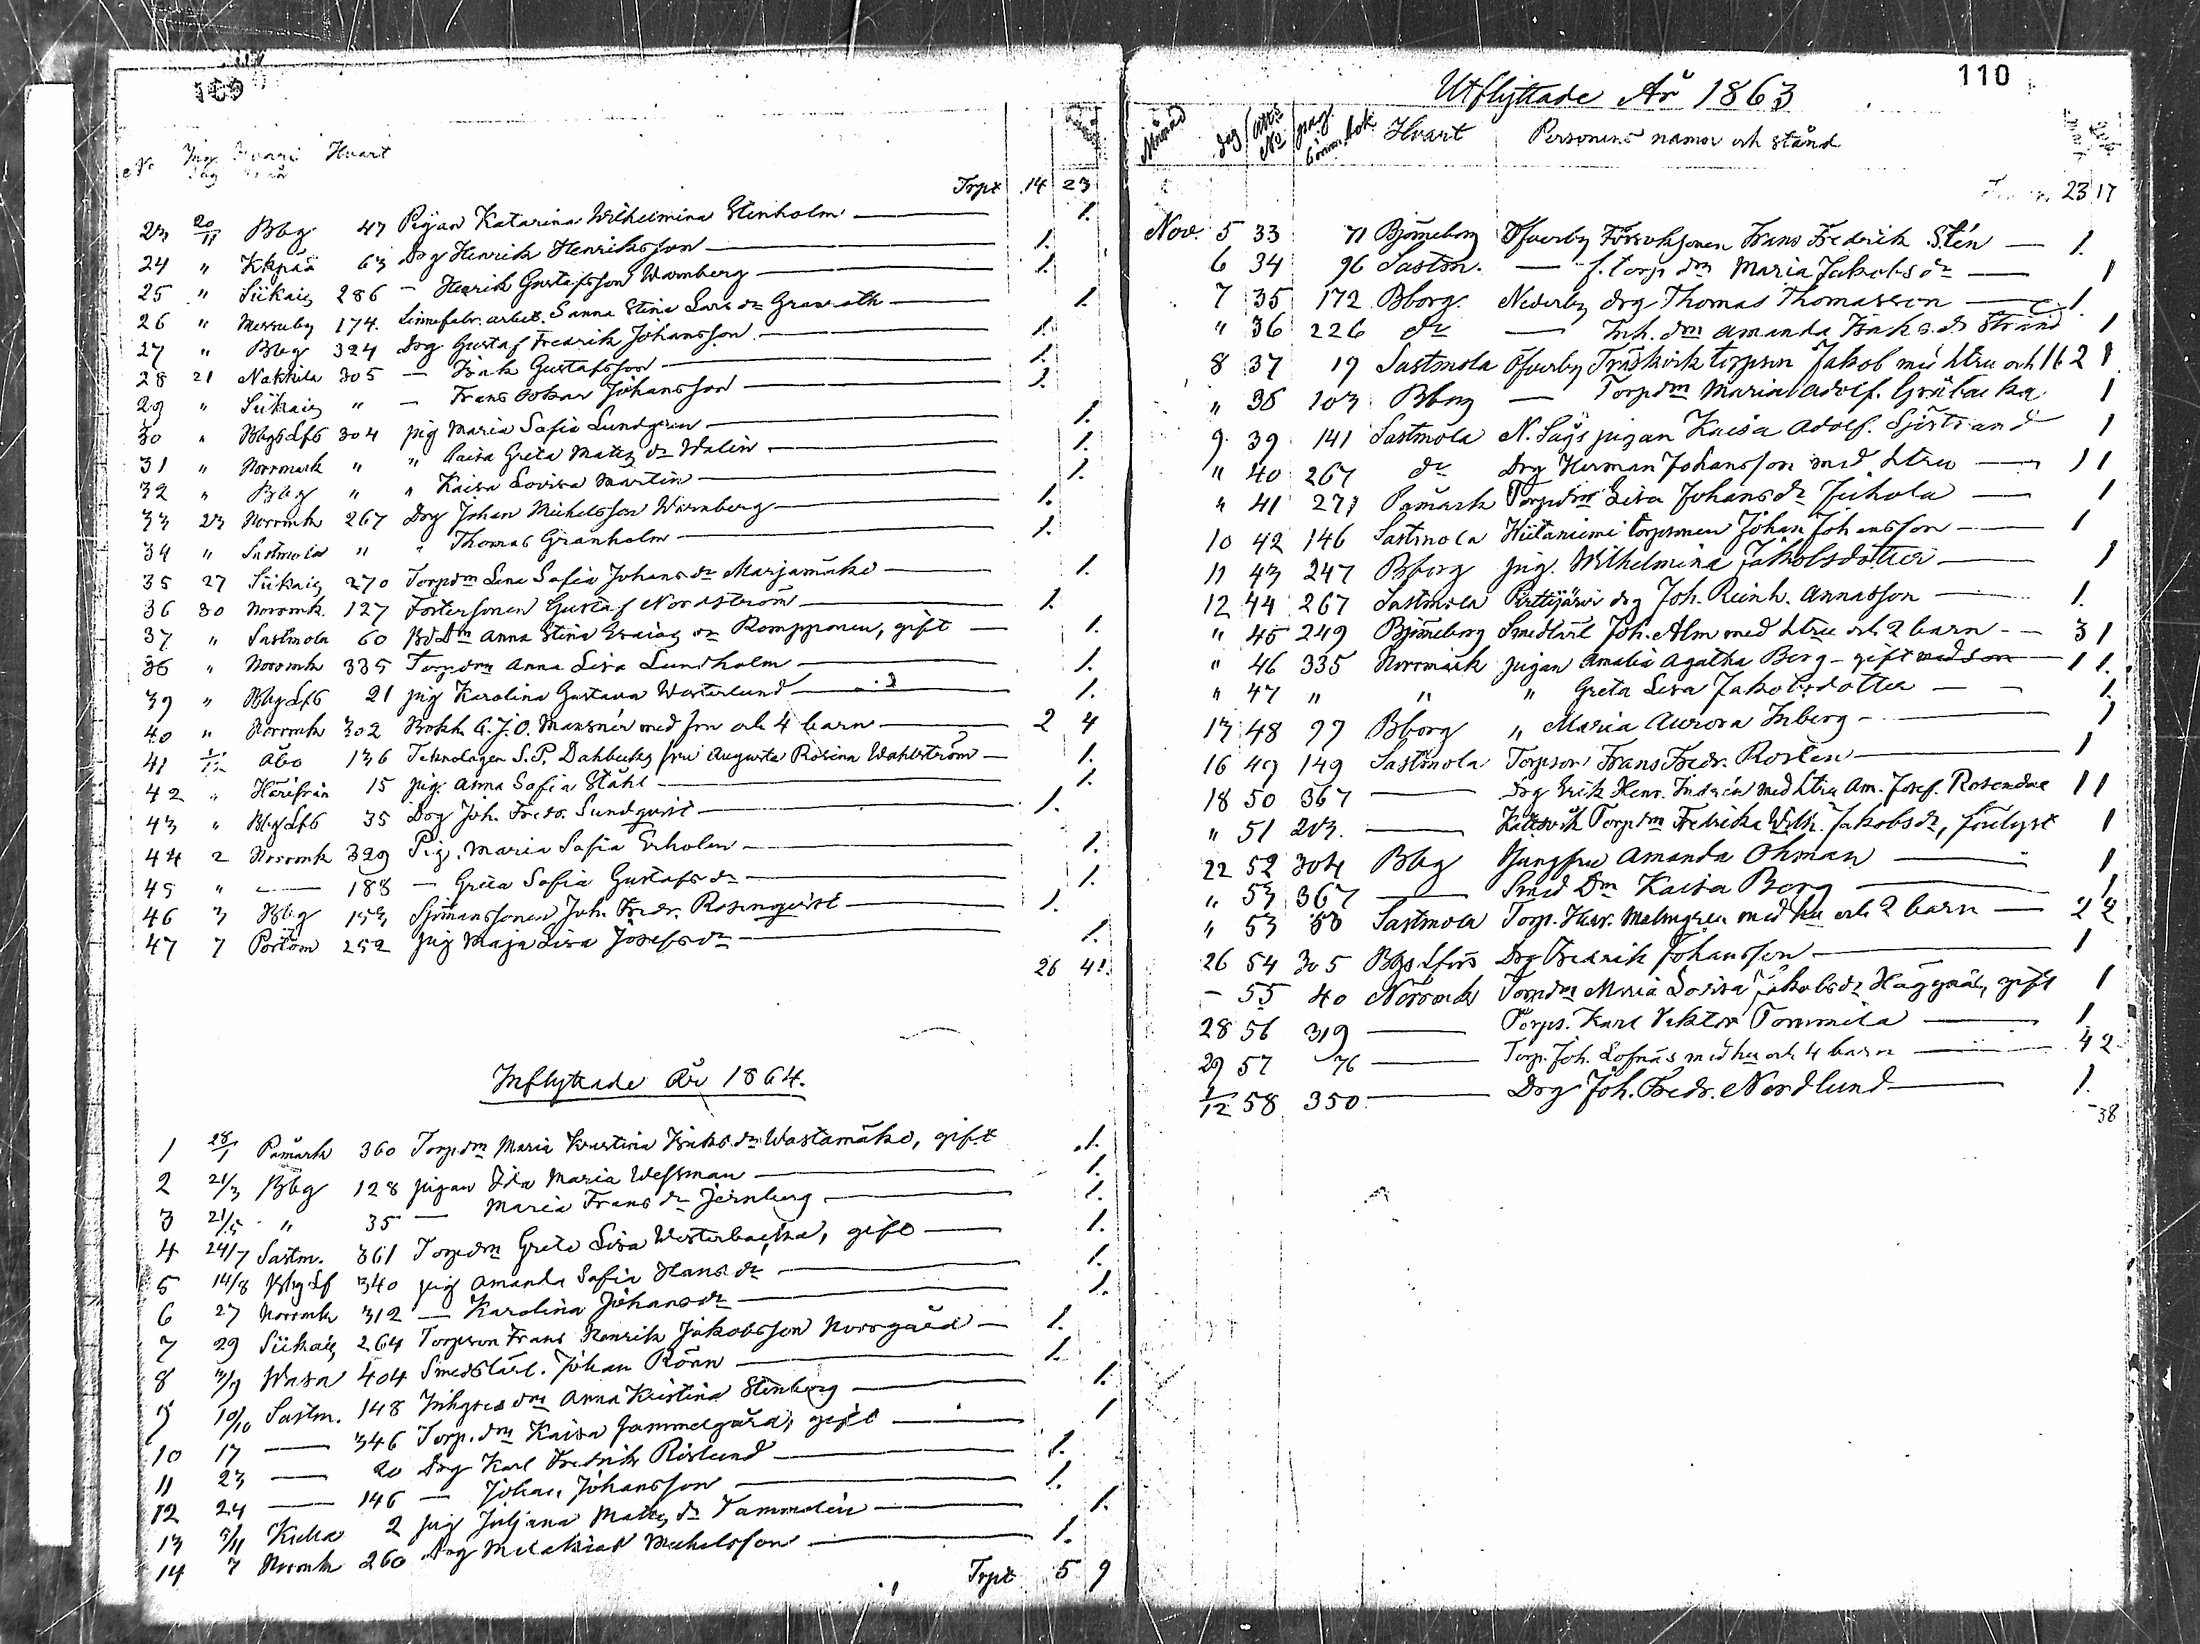 169
No Hvart
Trpt 14 23
23 20/11 Bbg 47 Pigan Katarina Wilhelmina Stenholm — 1.
24 " 63 Drg Henrik Henriksson — 1.
25 " Siikais 286 — Henrik Gustafsson Warnberg — 1.
26 " 174. Linnefabr. arbet. Sanna Stina Lars dr Granroth — 1.
27 " Bbg 324 Drg Gustaf Fredrik Johansson — 1.
28 21 Nakkila 305 — Isak Gustafsson — 1.
29 " Siikais " — Frans Oskar Johansson — 1.
30 " BbgsLfs 304 pig Maria Sofia Lundgren — 1.
31 " Norrmark " " Caisa Greta Mats dr Walin — 1.
32 " Bbg " " Kaisa Lovisa Martin — 1.
33 23 Norrmk 267 Drg Johan Michelsson Warnberg — 1.
34 " Sastmola " " Thomas Granholm — 1.
35 27 Siikais 270 Torpdm Lena Sofia Johans dr Marjamäki — 1.
36 30 Norrmk. 127 Fostersonen Gustaf Nordström — 1.
37 " Sastmola 60 Bd Dm Anna Stina Esaias dr Romppanen, gift — 1.
38 " Norrmk 335 Torpdm Anna Lisa Lundholm — 1.
39 " BbgLfs 21 pig Karolina Gustava Westerlund — 1.
40 " Norrmk 302 Bokh. G. J. O. Mansnér med fru och 4 barn — 2 4
41 1/12 Åbo 136 Teknologen S. P. Dahlbecks fru Augusta Rosina Wahlström — 1.
42 " Härifrån 15 pig. Anna Sofia Ståhl — 1.
43 " BbgLfs 35 Drg Joh. Fredr. Sundqvist — 1.
44 2 Norrmk 329 Pig. Maria Sofia Erholm — 1.
45 " — 188 — Greta Sofia Gustafs dr — 1.
46 3 Bbg 153 Sjömanssonen Joh. Fredr. Rosenqvist — 1.
47 7 Portom 252 pig Maja Lisa Josefs dr — 1.
26 41.
Inflyttade År 1864.
1 28/1 Påmark 360 Torpdm Maria Kristina Isaks dr Wästämäki, gift 1.
2 21/3 Bbg 128 pigan Ida Maria Wessman — 1.
3 21/5 " 35 — Maria Frans dr Jernberg — 1.
4 24/7 Sastm. 361 Torpdm Greta Lisa Westerbacka, gift — 1.
5 14/8 BbgLf 340 pig Amanda Sofia Hans dr — 1.
6 27 Norrmk 312 — Karolina Johans dr — 1.
7 29 Siikais 264 Torpson Frans Henrik Jakobsson Norrgård — 1.
8 Wasa 404 Smedslärl. Johan Rönn — 1.
9 10/10 Sastm. 148 Inhyses dm Anna Kristina Stenberg — 1.
10 17 — 346 Torp. dm Kaisa Gammelgård, gift — 1
11 23 — 20 Drg Karl Fredrik Roslund — 1.
12 24 — 146 — Johan Johansson — 1.
13 9/11 2 pig Juljana Mats dr Tammelin — 1.
14 7 Norrmk 260 Drg Melakias Michelsson — 1.
Trpt 5 9
110
Utflyttade År 1863
Månad dag Att: No pag. Comm. bok Hvart Personens namn och stånd
23 17
Nov. 5 33 71 Björneborg Öfverby Torvoksonen Frans Fredrik Stén — 1.
6 34 96 Sastm. — f. torp dm Maria Jakobs dr — 1
7 35 172 Bborg. Nederby drg Thomas Thomasson — 1.
" 36 226 dr — Inh. dm Amanda Isaks dr Strand 1
8 37 19 Sastmola Öfverby Träskvik torpson Jakob med htru och 1 b 2 1
" 38 103 Bborg — Torpdm Maria Adolf. Gräbacka 1
9. 39 141 Sastmola N. Sågs pigan Kaisa Adolf. Sjöstrand 1
" 40 267 dr Drg Herman Johansson med htru — 1 1
" 41 271 Påmark Torpdm Lisa Johans dr Jukola — 1
10 42 146 Sastmola Hiitaniemi torpsonen Johan Johansson — 1
11 43 247 Bborg pig. Wilhelmina Jakobsdotter — 1
12 44 267 Sastmola Pirttijärvi drg Joh. Reinh. Annasson — 1.
" 45 249 Björneborg Smedlärl Joh. Alm med htru och 2 barn — 3 1
" 46 335 Norrmark pigan Amalia Agatha Berg - gift med son — 1 1.
" 47 " " " Greta Lisa Jakobsdotter — 1.
13 48 97 Bborg " Maria Aurora Inberg — 1
16 49 149 Sastmola Torpson Frans Fredr. Rosten — 1
18 50 367 — Drg Erik Henr. Indrén med htru Am. Josef. Rosendal 1 1
" 51 203. — Torpdm Fredrika Wilh. Jakobs dr, förlyst 1
22 52 304 Bbg Jungfru Amanda Öhman — 1
" 53 367 — Smed Dm Kaisa Berg — 1
" 53 53 Sastmola Torp. Malmgren med hu och 2 barn — 2 2
26 54 305 Bbgs Lfrs Drg Fredrik Johansson — 1
— 55 40 Norrmk Torpdm Maria Lovisa Jakobs dr Häggnäs, gift 1
28 56 319 — Torps. Karl Viktor Tommila — 1
29 57 76 — Torp. Joh. Lofnäs med hu och 4 barn — 4 2
1/12 58 350 — Drg Joh. Fredr. Nordlund — 1.
38